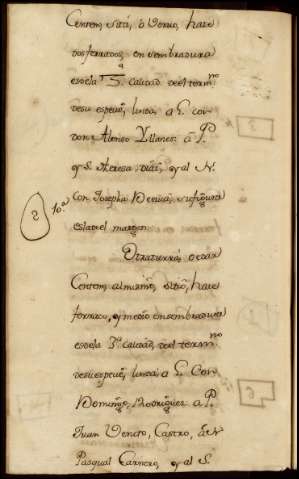 Centem, sitá, ô Venio, haze
dos ferrados, en sembradura
esde la 3ª calidad del termno
de su especie, linda, a L. con
don Alonso Yllanes â P.
y S. theresa Diaz, y al N.
2 10ª Con Josepha Benita, su figura
es la del margen
Otra tierra, o
Centem, al mismo, sitio, haze
ferrado, y medio en sembradura
esde la 3ª calidad, del termno
de su especie, linda, a L. Con
Domingo Rodriguez a P.
Juan Vento, Castro, al N.
Pasqual Carnero, y al S.